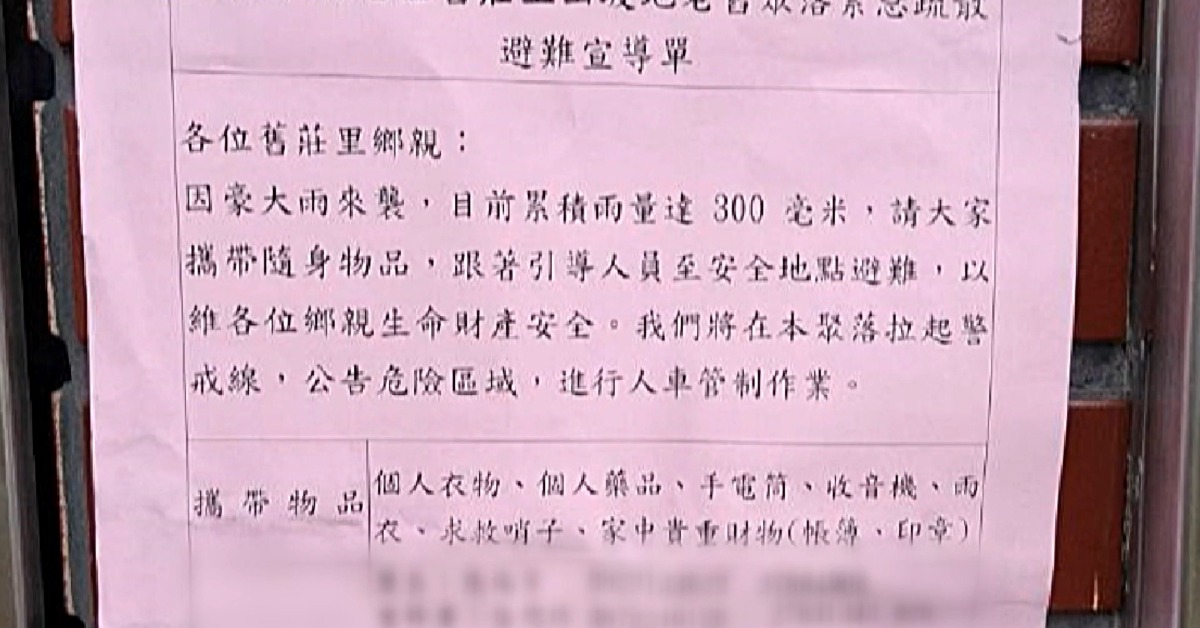 舊莊里山坡地老舊聚落緊急疏散
避難宣導單
各位舊莊里鄉親：
因豪大雨來襲，目前累積雨量達 300 毫米，請大家
攜帶隨身物品，跟著引導人員至安全地點避難，以
維各位鄉親生命財產安全。我們將在本聚落拉起警
戒線，公告危險區域，進行人車管制作業。
攜帶物品
個人衣物、個人藥品、手電筒、收音機、雨
衣、求救哨子、家中貴重財物(帳簿、印章)